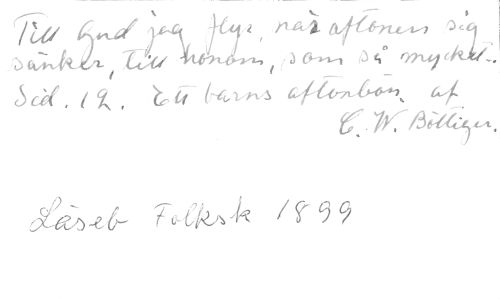 Till Gud jag flyr, när aftonen sig
sänker, till honom, som så mycket..
Sid. 12. Ett barns aftonbön. af
C. W. Böttiger.
Läseb Folksk 1899